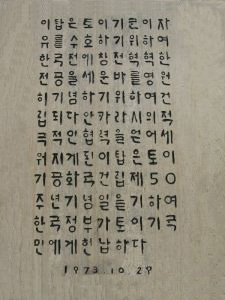 이탑은토이기군이자
유를수호하기위하여
한국전에참전혁혁한
전공을세운바를영원
히기념하기위하여건
립되다안카라시의적
극적인협력을얻어세
워지게된이탑은토이
기공화국건립제50
주년기념일을기하여
한국정부가토이기국
민에게헌납하다
1973.10.29